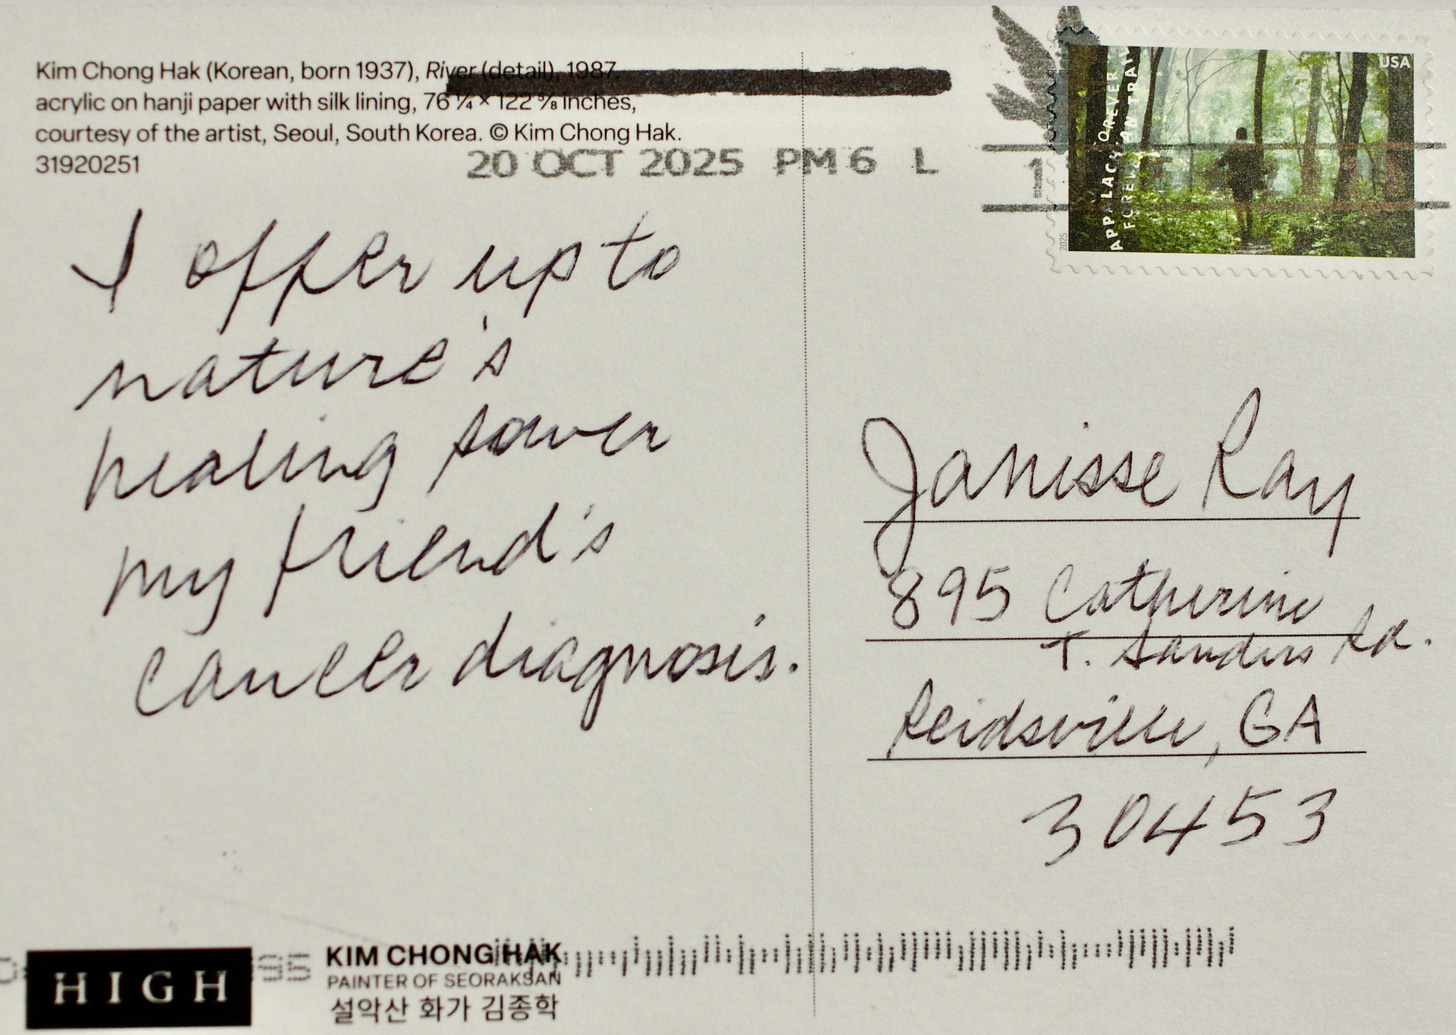 Kim Chong Hak (Korean, born 1937), River (detail), 1987,
acrylic on hanji paper with silk lining, 76 ¼ × 122 ⅝ inches,
courtesy of the artist, Seoul, South Korea. © Kim Chong Hak.
31920251
20 OCT 2025 PM 6 L
USA
APPALACHIAN TRAIL
FOREVER
2025
I offer up to
nature's
healing power
my friend's
cancer diagnosis.
Janisse Ray
895 Catherine
T. Sanders Rd.
Reidsville, GA
30453
HIGH
95
KIM CHONG HAK
PAINTER OF SEORAKSAN
설악산 화가 김종학